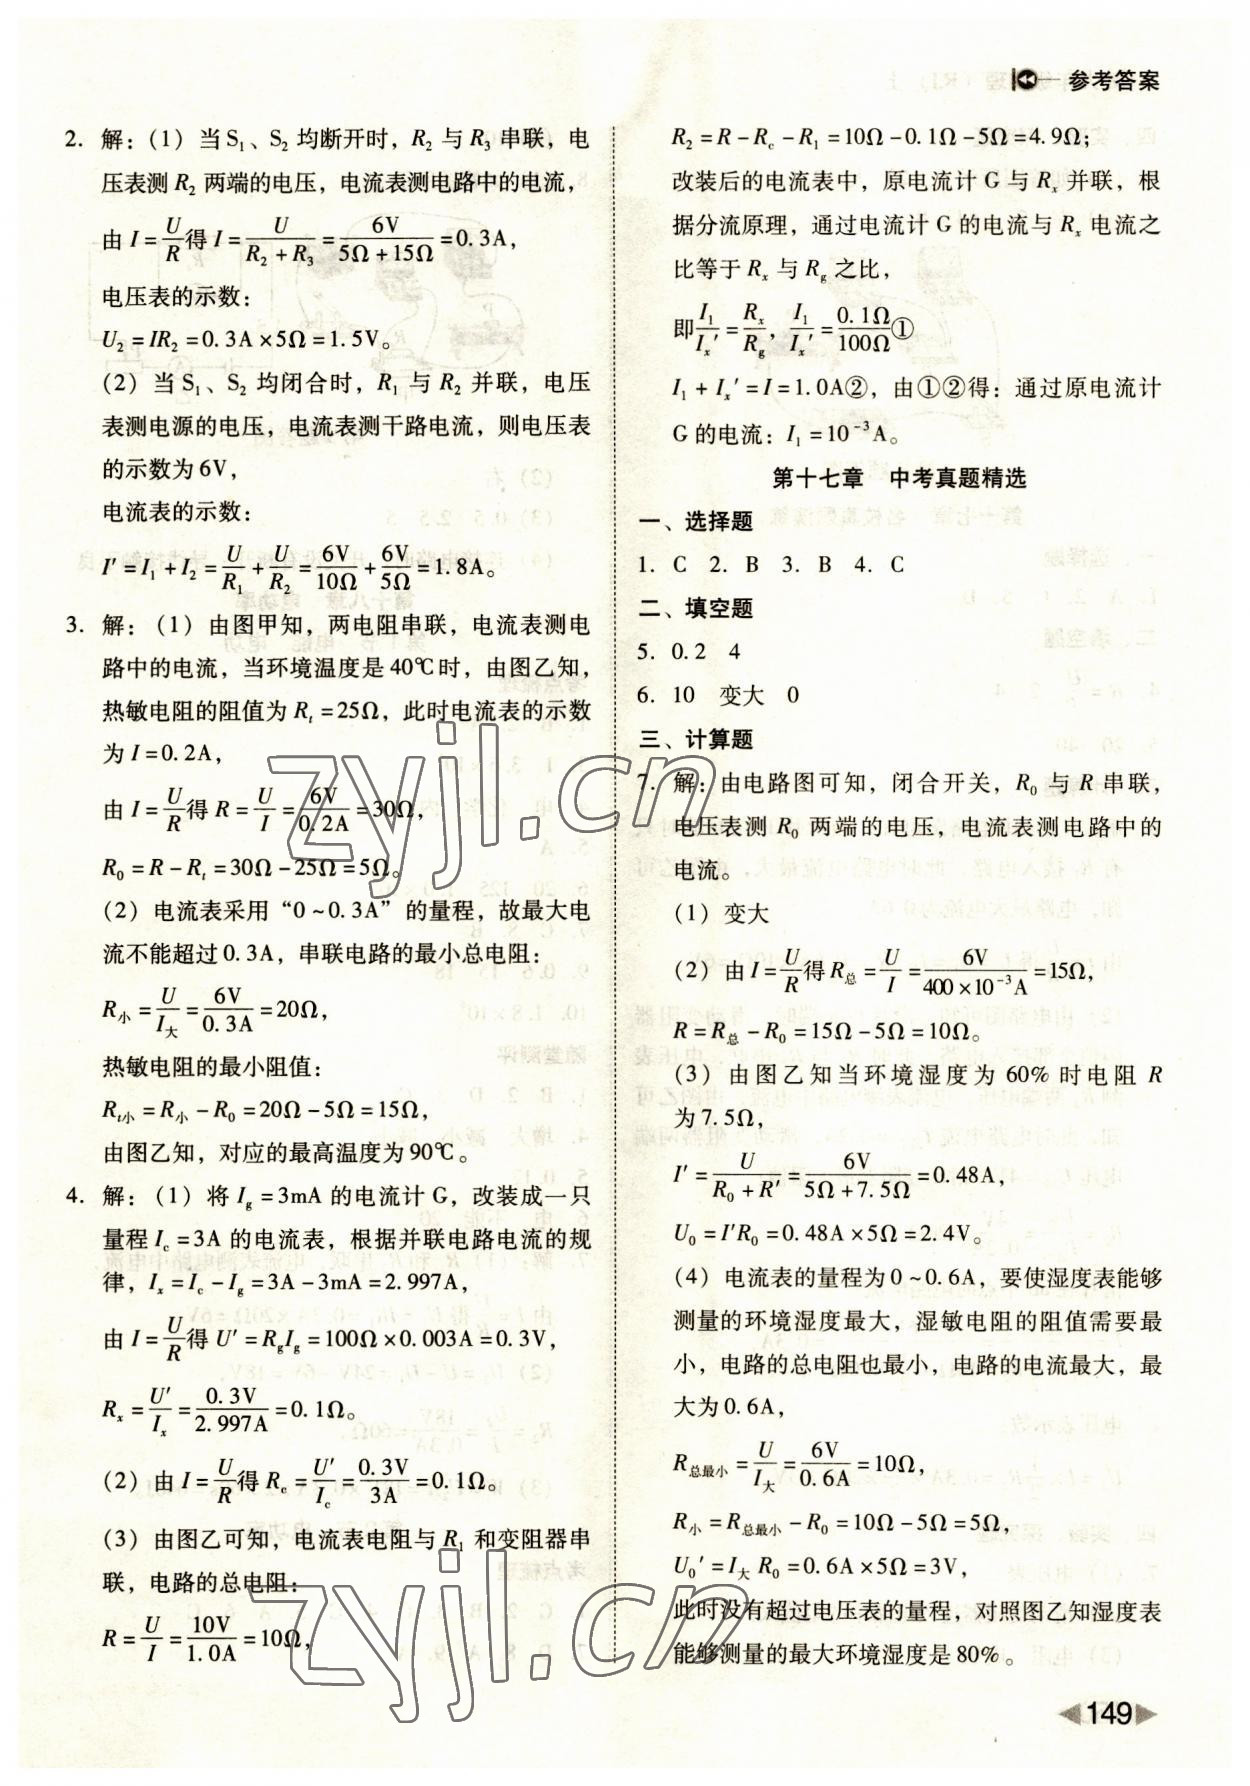 参考答案
2. 解:(1)当S₁、S₂均断开时，R₂与R₃串联，电
压表测R₂两端的电压，电流表测电路中的电流，
由I=U/R得I=U/(R₂+R₃)=6V/(5Ω+15Ω)=0.3A，
电压表的示数：
U₂=IR₂=0.3A×5Ω=1.5V。
(2)当S₁、S₂均闭合时，R₁与R₂并联，电压
表测电源的电压，电流表测干路电流，则电压表
的示数为6V，
电流表的示数：
I′=I₁+I₂=U/R₁+U/R₂=6V/10Ω+6V/5Ω=1.8A。
3. 解:(1)由图甲知，两电阻串联，电流表测电
路中的电流，当环境温度是40℃时，由图乙知，
热敏电阻的阻值为Rₜ=25Ω，此时电流表的示数
为I=0.2A，
由I=U/R得R=U/I=6V/0.2A=30Ω，
R₀=R-Rₜ=30Ω-25Ω=5Ω。
(2)电流表采用“0~0.3A”的量程，故最大电
流不能超过0.3A，串联电路的最小总电阻：
R小=U/I大=6V/0.3A=20Ω，
热敏电阻的最小阻值：
Rₜ小=R小-R₀=20Ω-5Ω=15Ω，
由图乙知，对应的最高温度为90℃。
4. 解:(1)将I_g=3mA的电流计G，改装成一只
量程I_c=3A的电流表，根据并联电路电流的规
律，Iₓ=I_c-I_g=3A-3mA=2.997A，
由I=U/R得U′=R_gI_g=100Ω×0.003A=0.3V，
Rₓ=U′/Iₓ=0.3V/2.997A=0.1Ω。
(2)由I=U/R得R_c=U′/I_c=0.3V/3A=0.1Ω。
(3)由图乙可知，电流表电阻与R₁和变阻器串
联，电路的总电阻：
R=U/I=10V/1.0A=10Ω，
R₂=R-R_c-R₁=10Ω-0.1Ω-5Ω=4.9Ω；
改装后的电流表中，原电流计G与Rₓ并联，根
据分流原理，通过电流计G的电流与Rₓ电流之
比等于Rₓ与R_g之比，
即I₁/Iₓ′=Rₓ/R_g，I₁/Iₓ′=0.1Ω/100Ω①
I₁+Iₓ′=I=1.0A②，由①②得：通过原电流计
G的电流：I₁=10⁻³A。
第十七章 中考真题精选
一、选择题
1. C 2. B 3. B 4. C
二、填空题
5. 0.2 4
6. 10 变大 0
三、计算题
7. 解：由电路图可知，闭合开关，R₀与R串联，
电压表测R₀两端的电压，电流表测电路中的
电流。
(1)变大
(2)由I=U/R得R总=U/I=6V/(400×10⁻³A)=15Ω，
R=R总-R₀=15Ω-5Ω=10Ω。
(3)由图乙知当环境湿度为60%时电阻R
为7.5Ω，
I′=U/(R₀+R′)=6V/(5Ω+7.5Ω)=0.48A，
U₀=I′R₀=0.48A×5Ω=2.4V。
(4)电流表的量程为0~0.6A，要使湿度表能够
测量的环境湿度最大，湿敏电阻的阻值需要最
小，电路的总电阻也最小，电路的电流最大，最
大为0.6A，
R总最小=U/I大=6V/0.6A=10Ω，
R小=R总最小-R₀=10Ω-5Ω=5Ω，
U₀′=I大R₀=0.6A×5Ω=3V，
此时没有超过电压表的量程，对照图乙知湿度表
能够测量的最大环境湿度是80%。
149
zyjl.cn
zyjl.cn